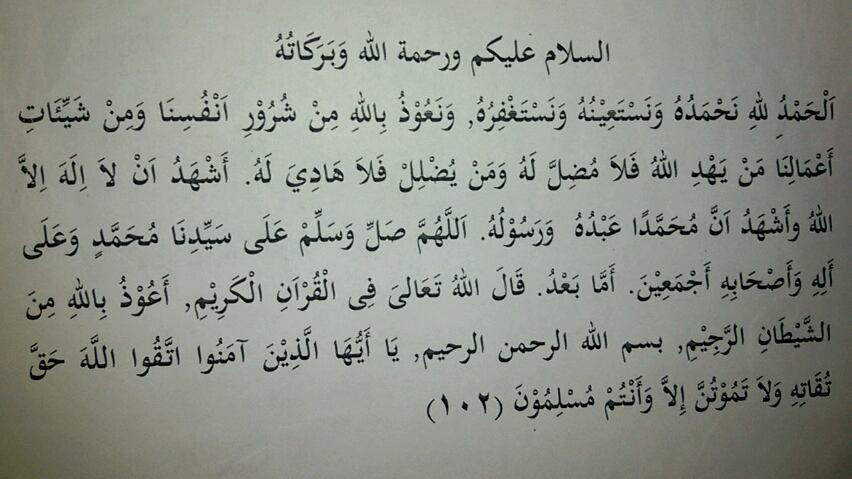 السلام عليكم ورحمة الله وَبَرَكَاتُهُ
اَلْحَمْدُ للهِ نَحْمَدُهُ وَنَسْتَعِيْنُهُ وَنَسْتَغْفِرُهُ, وَنَعُوْذُ بِاللهِ مِنْ شُرُوْرِ اَنْفُسِنَا وَمِنْ شَيِّئَاتِ
أَعْمَالِنَا مَنْ يَهْدِ اللهُ فَلاَ مُضِلَّ لَهُ وَمَنْ يُضْلِلْ فَلاَ هَادِيَ لَهُ. أَشْهَدُ اَنْ لاَ اِلَهَ اِلاَّ
اللهُ وأَشْهَدُ اَنَّ مُحَمَّدًا عَبْدُهُ وَرَسُوْلُهُ. اَللَّهُمَّ صَلِّ وَسَلِّمْ عَلَى سَيِّدِنَا مُحَمَّدٍ وَعَلَى
أَلِهِ وَأَصْحَابِهِ أَجْمَعِيْنَ. أَمَّا بَعْدُ. قَالَ اللهُ تَعَالىَ فِى الْقُرْاَنِ الْكَرِيْمِ, أَعُوْذُ بِاللهِ مِنَ
الشَّيْطَانِ الرَّجِيْمِ, بسم الله الرحمن الرحيم, يَا أَيُّهَا الَّذِيْنَ آمَنُوا اتَّقُوا اللَّهَ حَقَّ
تُقَاتِهِ وَلاَ تَمُوْتُنَّ إِلاَّ وَأَنْتُمْ مُسْلِمُوْنَ (١٠٢)